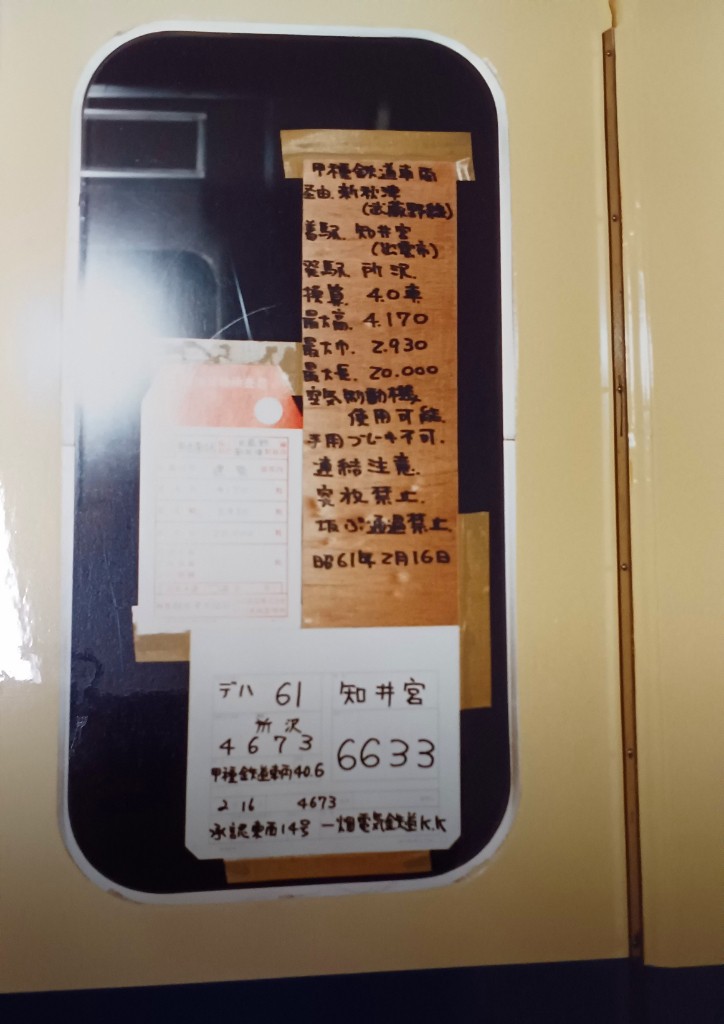 甲種鉄道車両
経由.新秋津
(武蔵野線)
着駅.知井宮
(出雲市)
発駅.所沢.
換算.4.0車
最大高.4.170
最大巾.2.930
最大長.20.000
空気制動機
使用可能.
手用ブレーキ不可.
連結注意.
突放禁止.
坂ぷ通過禁止
昭61年2月16日
デハ 61 知井宮
所沢
4673 6633
甲種鉄道車両40.6
2 16 4673
承認東西14号 一畑電気鉄道K.K